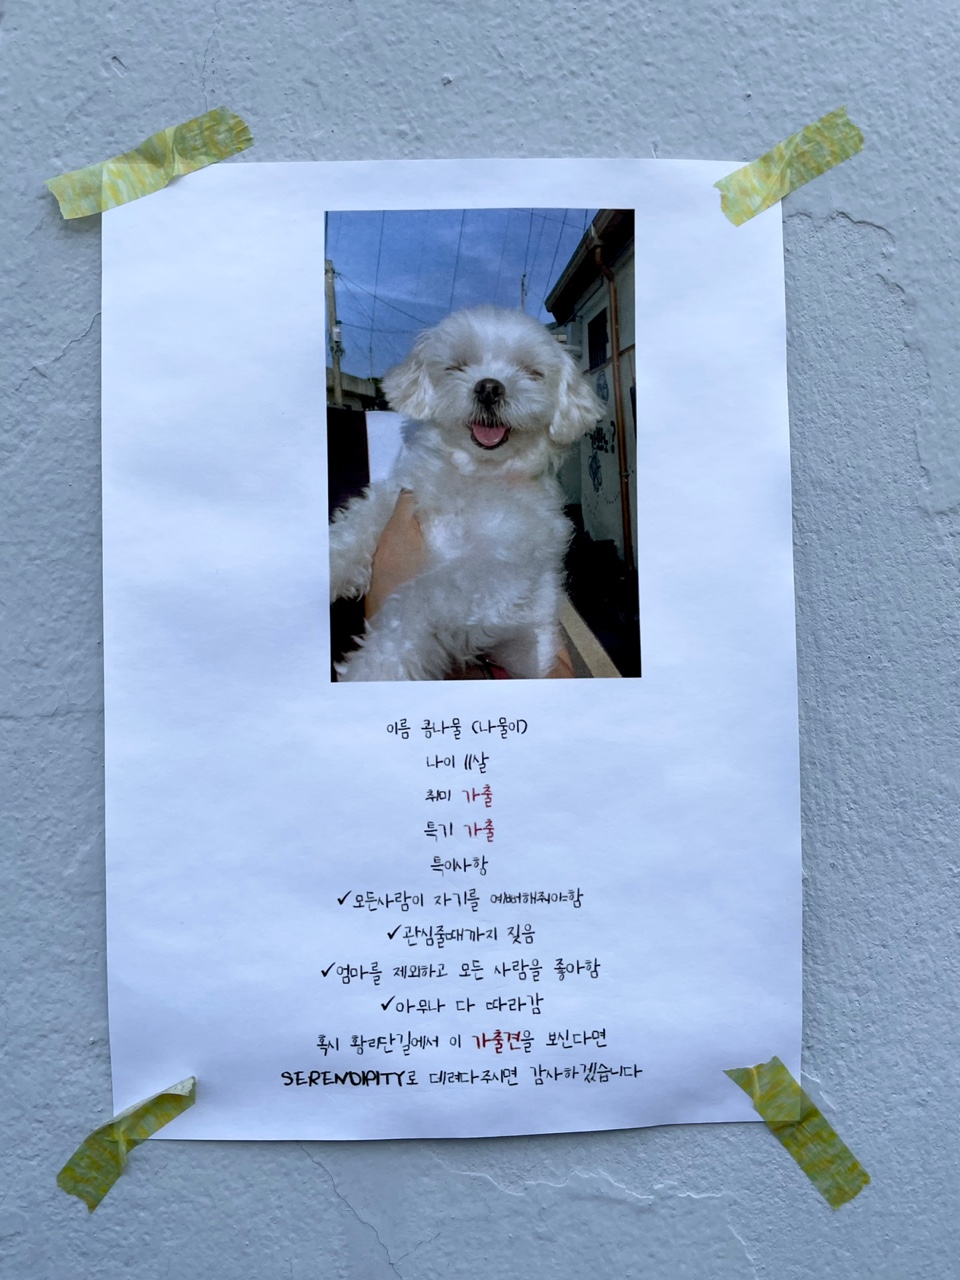 이름 콩나물 (나물이)
나이 11살
취미 가출
특기 가출
특이사항
✓모든사람이 자기를 예뻐해줘야함
✓관심줄때까지 짖음
✓엄마를 제외하고 모든 사람을 좋아함
✓아무나 다 따라감
혹시 황리단길에서 이 가출견을 보신다면
SERENDIPITY로 데려다주시면 감사하겠습니다